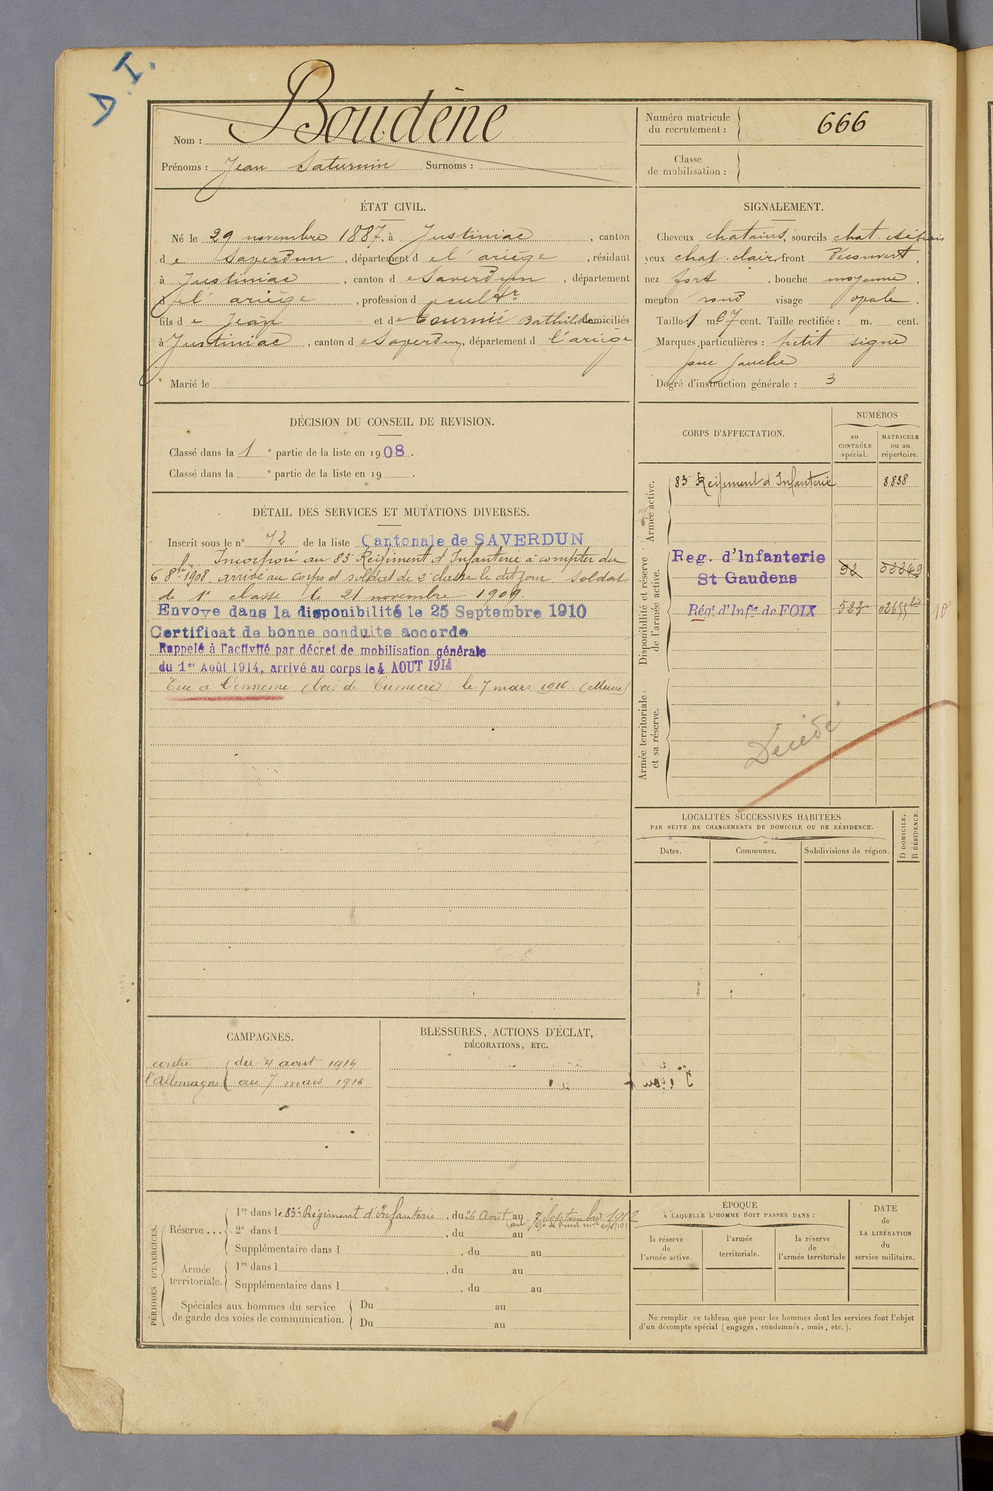 D. I.
Nom : Boudène
Prénoms : Jean Saturnin Surnoms :
Numéro matricule du recrutement : 666
Classe de mobilisation :
ÉTAT CIVIL.
Né le 29 novembre 1887, à Justiniac, canton
de Saverdun, département de l'ariège, résidant
à Justiniac, canton de Saverdun, département
de l'ariège, profession d cultr
fils de Jean et de Tournié Bathilde domiciliés
à Justiniac, canton de Saverdun, département d l'ariège
Marié le
SIGNALEMENT.
Cheveux chatains, sourcils chat.
yeux chat. clair front découvert,
nez fort, bouche moyenne,
menton rond visage ovale.
Taille 1 m. 67 cent. Taille rectifiée : m. cent.
Marques particulières : petit signe
joue gauche
Degré d'instruction générale : 3
DÉCISION DU CONSEIL DE REVISION.
Classé dans la 1e partie de la liste en 1908.
Classé dans la e partie de la liste en 19 .
CORPS D'AFFECTATION.
NUMÉROS
au CONTRÔLE spécial.
MATRICULE ou au répertoire.
Armée active.
83e Régiment d'Infanterie 8838
Disponibilité et réserve de l'armée active.
Reg. d'Infanterie
St Gaudens
Régt d'Infie de FOIX 527
Armée territoriale et sa réserve.
Décédé
DÉTAIL DES SERVICES ET MUTATIONS DIVERSES.
Inscrit sous le n° 42 de la liste Cantonale de SAVERDUN
Incorporé au 83e Régiment d'Infanterie à compter du
6 8bre 1908, arrivé au corps et soldat de 2e classe le dit jour. Soldat
de 1e classe le 21 novembre 1909.
Envoyé dans la disponibilité le 25 Septembre 1910
Certificat de bonne conduite accordé
Rappelé à l'activité par décret de mobilisation générale
du 1er Août 1914, arrivé au corps le 4 AOUT 1914
Tué à l'ennemi (bois de Cumières) le 7 mars 1916 (Meuse)
LOCALITÉS SUCCESSIVES HABITÉES
PAR SUITE DE CHANGEMENTS DE DOMICILE OU DE RÉSIDENCE.
Dates.
Communes.
Subdivisions de région.
D DOMICILE,
R RÉSIDENCE.
CAMPAGNES.
contre l'Allemagne { du 4 aout 1914
au 7 mars 1916
BLESSURES, ACTIONS D'ÉCLAT,
DÉCORATIONS, ETC.
PÉRIODES D'EXERCICES.
Réserve....
1re dans le 83e Régiment d'Infanterie, du 26 Août au 7 Septembre 1912
2e dans l , du au
Supplémentaire dans l , du au
Armée territoriale.
1re dans l , du au
Supplémentaire dans l , du au
Spéciales aux hommes du service de garde des voies de communication.
Du au
Du au
ÉPOQUE
À LAQUELLE L'HOMME DOIT PASSER DANS :
la réserve de l'armée active.
l'armée territoriale.
la réserve de l'armée territoriale
DATE de LA LIBÉRATION du service militaire.
Ne remplir ce tableau que pour les hommes dont les services font l'objet
d'un décompte spécial (engagés, condamnés, omis, etc.).